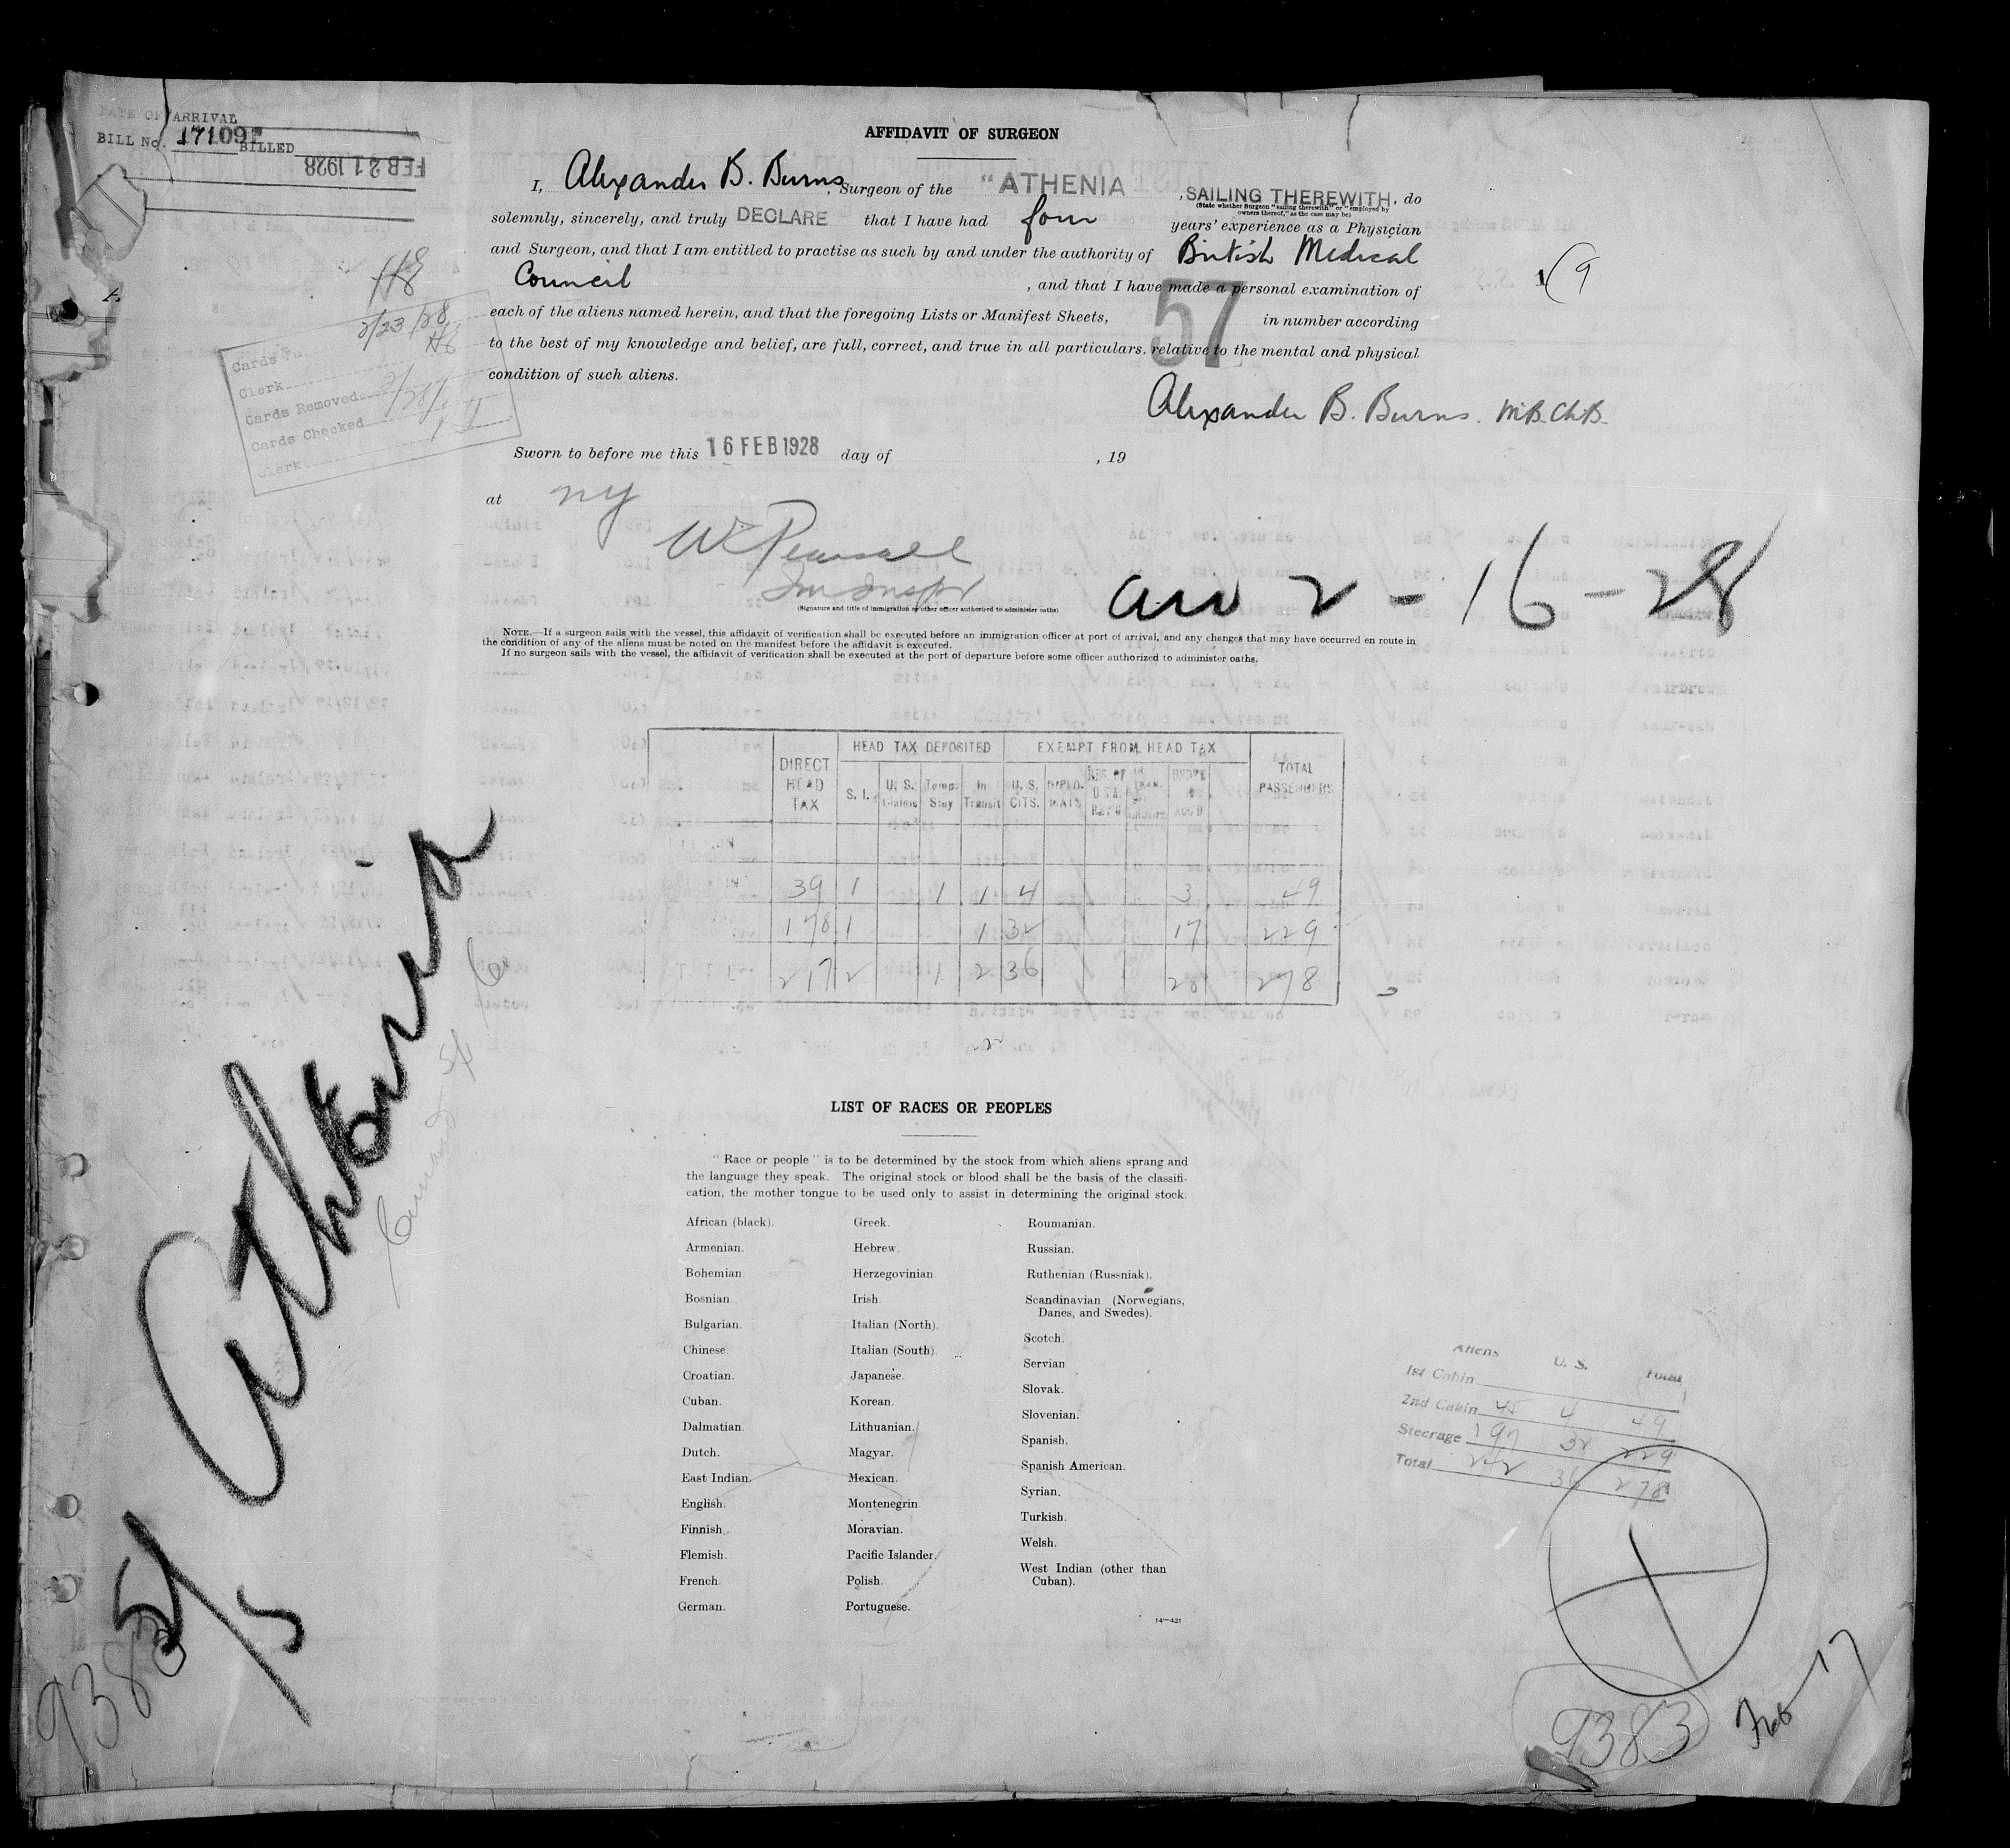 DATE OF ARRIVAL
BILL No. 17109 BILLED
FEB 21 1928
AFFIDAVIT OF SURGEON
I, Alexander B. Burns, Surgeon of the "ATHENIA, SAILING THEREWITH, do
(State whether Surgeon "sailing therewith" or "employed by
owners thereof," as the case may be)
solemnly, sincerely, and truly DECLARE that I have had four years' experience as a Physician
and Surgeon, and that I am entitled to practise as such by and under the authority of British Medical
Council, and that I have made a personal examination of
each of the aliens named herein, and that the foregoing Lists or Manifest Sheets, 57 in number according
to the best of my knowledge and belief, are full, correct, and true in all particulars, relative to the mental and physical
condition of such aliens.
Alexander B. Burns. M.B. Ch.B.
1(9
2/23/28
Clerk
Cards Removed
Cards Checked
Clerk
Sworn to before me this 16 FEB 1928 day of , 19
at ny
W Pearsall
Imm Inspr
(Signature and title of immigration or other officer authorized to administer oaths)
arr 2 - 16 - 28
NOTE.—If a surgeon sails with the vessel, this affidavit of verification shall be executed before an immigration officer at port of arrival, and any changes that may have occurred en route in
the condition of any of the aliens must be noted on the manifest before the affidavit is executed.
If no surgeon sails with the vessel, the affidavit of verification shall be executed at the port of departure before some officer authorized to administer oaths.
HEAD TAX DEPOSITED EXEMPT FROM HEAD TAX
DIRECT HEAD TAX S. I. U. S. Claims Temp. Stay In Transit U. S. CITS. DIPLO-MATS UNDER TOTAL PASSENGERS
39 1 1 1 4 3 49
178 1 1 32 17 229
217 2 1 2 36 20 278
Athenia
LIST OF RACES OR PEOPLES
"Race or people" is to be determined by the stock from which aliens sprang and
the language they speak. The original stock or blood shall be the basis of the classifi-
cation, the mother tongue to be used only to assist in determining the original stock.
African (black).
Armenian.
Bohemian.
Bosnian.
Bulgarian.
Chinese.
Croatian.
Cuban.
Dalmatian.
Dutch.
East Indian.
English.
Finnish.
Flemish.
French.
German.
Greek.
Hebrew.
Herzegovinian.
Irish.
Italian (North).
Italian (South).
Japanese.
Korean.
Lithuanian.
Magyar.
Mexican.
Montenegrin.
Moravian.
Pacific Islander.
Polish.
Portuguese.
Roumanian.
Russian.
Ruthenian (Russniak).
Scandinavian (Norwegians,
Danes, and Swedes).
Scotch.
Servian
Slovak.
Slovenian.
Spanish.
Spanish American.
Syrian.
Turkish.
Welsh.
West Indian (other than
Cuban).
14—431
Aliens U. S. Total
1st Cabin
2nd Cabin 45 4 49
Steerage 197 32 229
Total 242 36 278
9383
9383
Feb 17